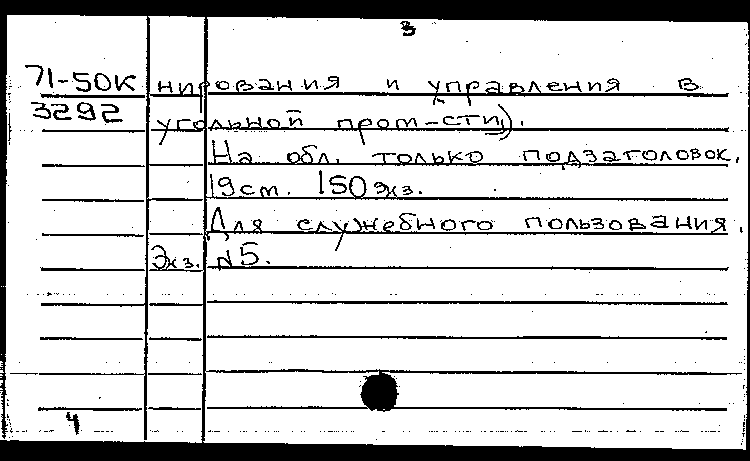 3
71-50К нирования и управления в
3292 угольной пром-сти).
На обл. только подзаголовок.
19см. 150экз.
Для служебного пользования.
Экз. №5.
4